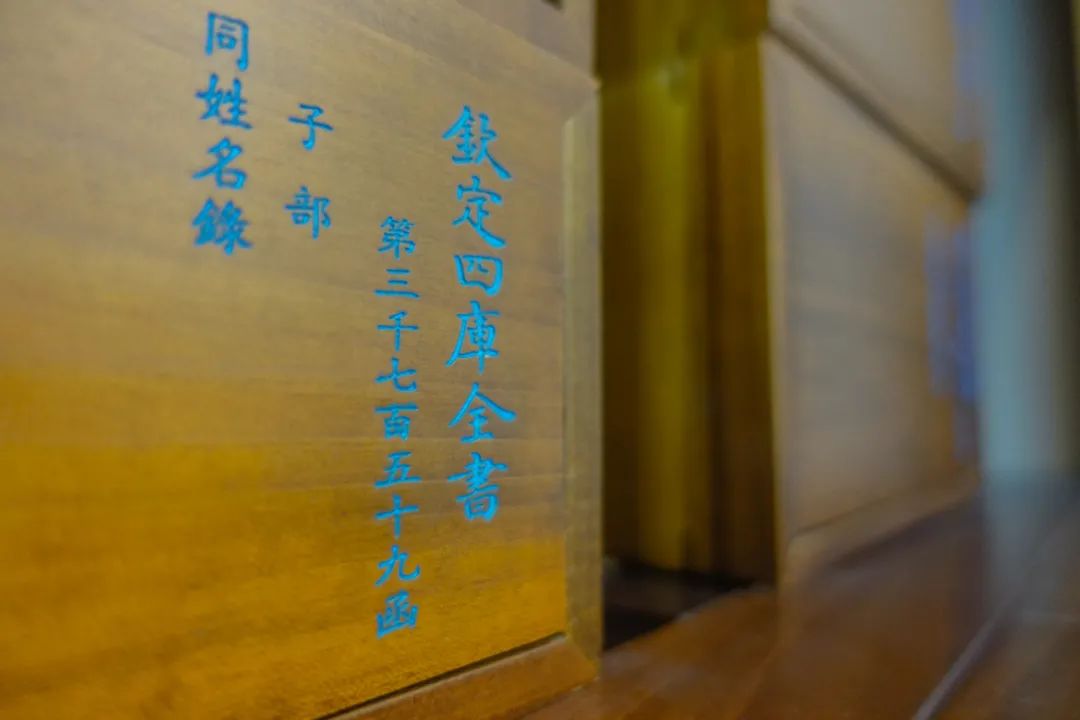 欽定四庫全書
第三千七百五十九函
子部
同姓名錄